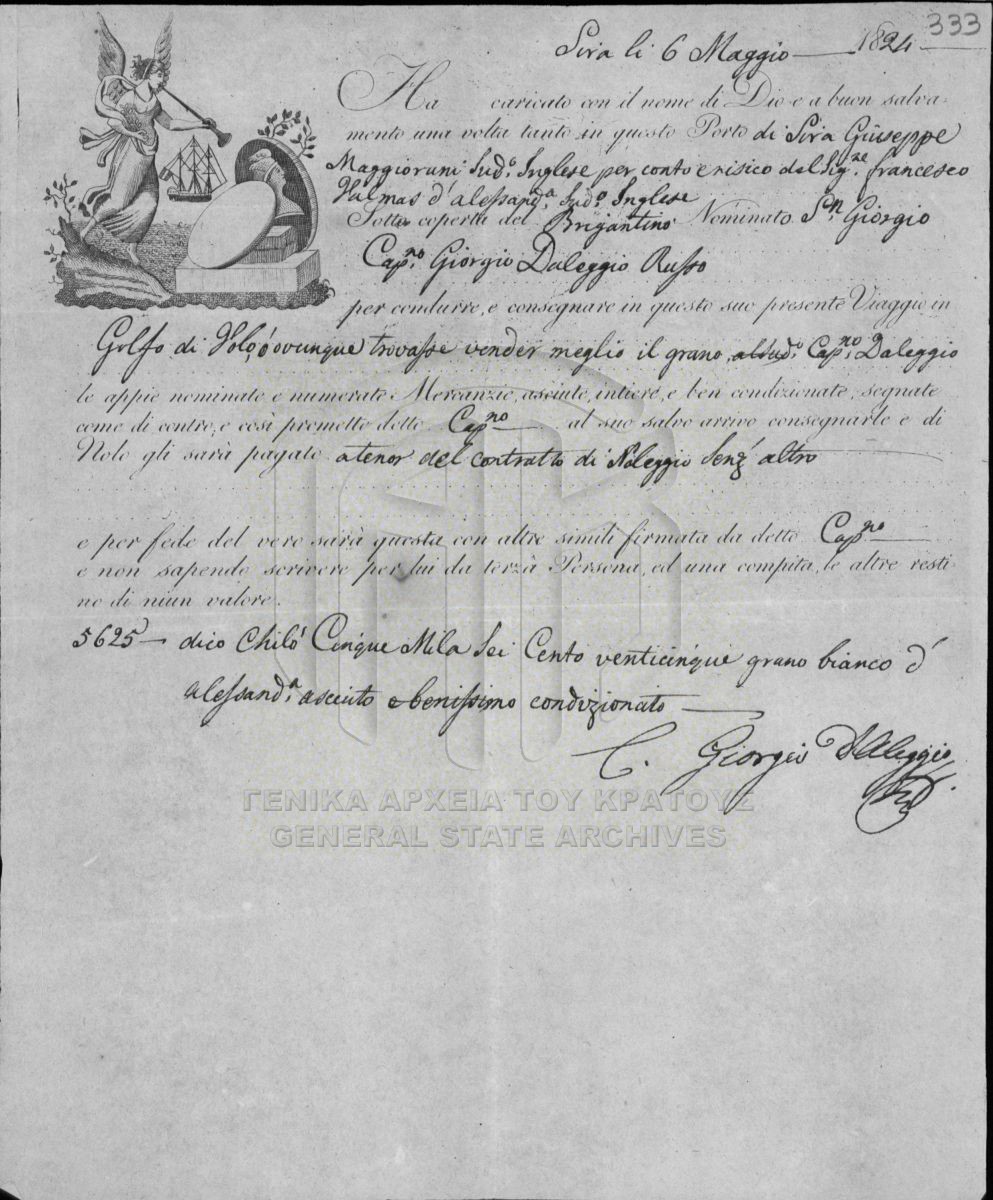 333
Sira li 6 Maggio 1824
Ha caricato con il nome di Dio e a buon salva-
mento una volta tanto in questo Porto di Sira Giuseppe
Maggiorani Sud.º Inglese per conto e risico del Sig.re francesco
Valmas d'alessand.a Sud.º Inglese
Sotto coperta del Brigantino Nominato S.n Giorgio
Cap.no Giorgio Daleggio Russo
per condurre, e consegnare in questo suo presente Viaggio in
Golfo di Volo, ó ovunque trovasse vender meglio il grano, al sud.º Cap.no Daleggio
le appiè nominate e numerate Mercanzie, asciute, intiere, e ben condizionate, segnate
come di contro, e così promette detto Cap.no al suo salvo arrivo consegnarle e di
Nolo gli sarà pagato a tenor del contratto di Noleggio Senz' altro
e per fede del vero sarà questa con altre simili firmata da detto Cap.no
e non sapendo scrivere per lui da terza Persona, ed una compita, le altre resti-
no di niun valore.
5625 — dico Chiló Cinque Mila Sei Cento venticinque grano bianco d'
alessand.a asciuto e benissimo condizionato
C. Giorgio D'Aleggio
ΓΕΝΙΚΑ ΑΡΧΕΙΑ ΤΟΥ ΚΡΑΤΟΥΣ
GENERAL STATE ARCHIVES